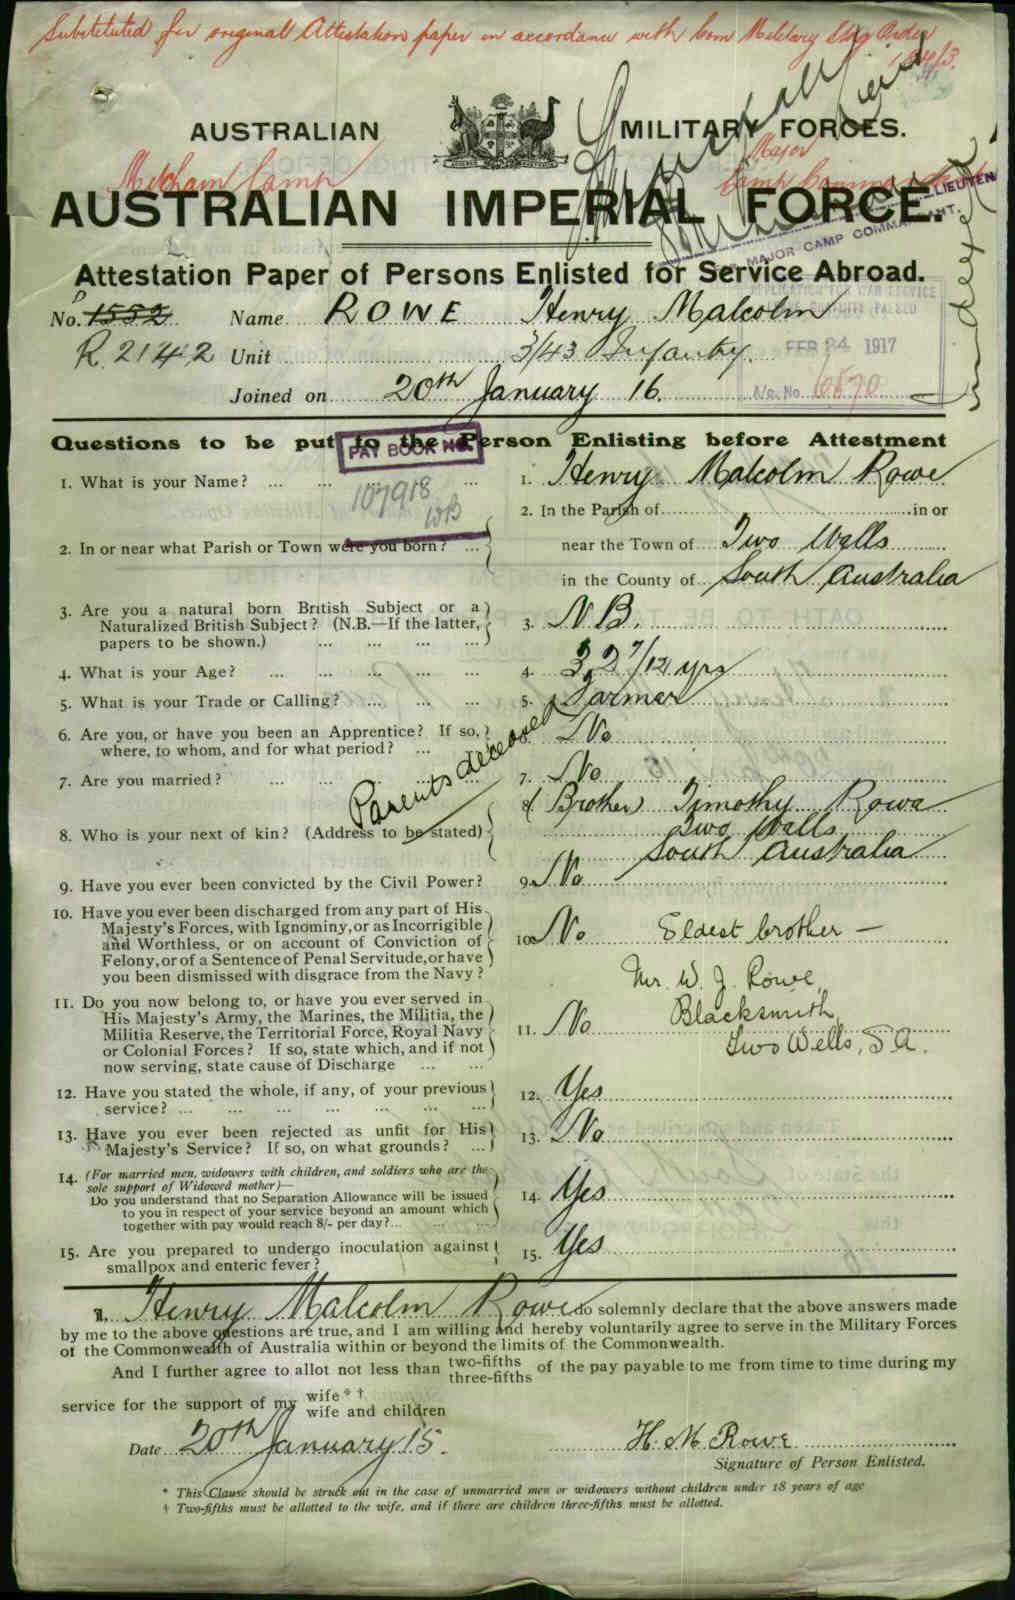 Substituted for original Attestation paper in accordance with Com Military Orders
AUSTRALIAN MILITARY FORCES.
Mitcham Camp
Major
Camp Commandant
AUSTRALIAN IMPERIAL FORCE.
LIEUTEN
MAJOR CAMP COMMANDANT.
Indexed
Attestation Paper of Persons Enlisted for Service Abroad.
No. 1552 Name ROWE Henry Malcolm
R. 2142 Unit 3/43 Infantry.
Joined on 20th January 16.
APPLICATION FOR WAR SERVICE
PASSED
FEB 24 1917
No. 10890
Questions to be put to the Person Enlisting before Attestment
PAY BOOK NO.
107918
WB
1. What is your Name? ... ... ... 1. Henry Malcolm Rowe
2. In the Parish of in or
2. In or near what Parish or Town were you born? ... near the Town of Two Wells
in the County of South Australia
3. Are you a natural born British Subject or a
Naturalized British Subject? (N.B.—If the latter, 3. N.B.
papers to be shown.) ... ... ...
4. What is your Age? ... ... ... ... ... 4. 32 7/12 yrs
5. What is your Trade or Calling? ... ... ... 5. Farmer
6. Are you, or have you been an Apprentice? If so, 6. No
where, to whom, and for what period? ...
7. Are you married? ... ... ... ... ... 7. No
Parents deceased
8. (Brother) Timothy Rowe
8. Who is your next of kin? (Address to be stated) Two Wells
South Australia
9. Have you ever been convicted by the Civil Power? 9. No
10. Have you ever been discharged from any part of His
Majesty's Forces, with Ignominy, or as Incorrigible
and Worthless, or on account of Conviction of 10. No Eldest brother —
Felony, or of a Sentence of Penal Servitude, or have
you been dismissed with disgrace from the Navy?
Mr. W. J. Rowe,
11. Do you now belong to, or have you ever served in
His Majesty's Army, the Marines, the Militia, the Blacksmith
Militia Reserve, the Territorial Force, Royal Navy 11. No
or Colonial Forces? If so, state which, and if not Two Wells, S.A.
now serving, state cause of Discharge ... ...
12. Have you stated the whole, if any, of your previous 12. Yes
service? ... ... ... ... ... ...
13. Have you ever been rejected as unfit for His 13. No
Majesty's Service? If so, on what grounds? ...
14. (For married men, widowers with children, and soldiers who are the
sole support of Widowed mother)—
Do you understand that no Separation Allowance will be issued 14. Yes
to you in respect of your service beyond an amount which
together with pay would reach 8/- per day?... ... ...
15. Are you prepared to undergo inoculation against 15. Yes
smallpox and enteric fever?
I, Henry Malcolm Rowe do solemnly declare that the above answers made
by me to the above questions are true, and I am willing and hereby voluntarily agree to serve in the Military Forces
of the Commonwealth of Australia within or beyond the limits of the Commonwealth.
And I further agree to allot not less than two-fifths three-fifths of the pay payable to me from time to time during my
service for the support of my wife * † wife and children
Date 20th January 15. H. M. Rowe
Signature of Person Enlisted.
* This Clause should be struck out in the case of unmarried men or widowers without children under 18 years of age
† Two-fifths must be allotted to the wife, and if there are children three-fifths must be allotted.